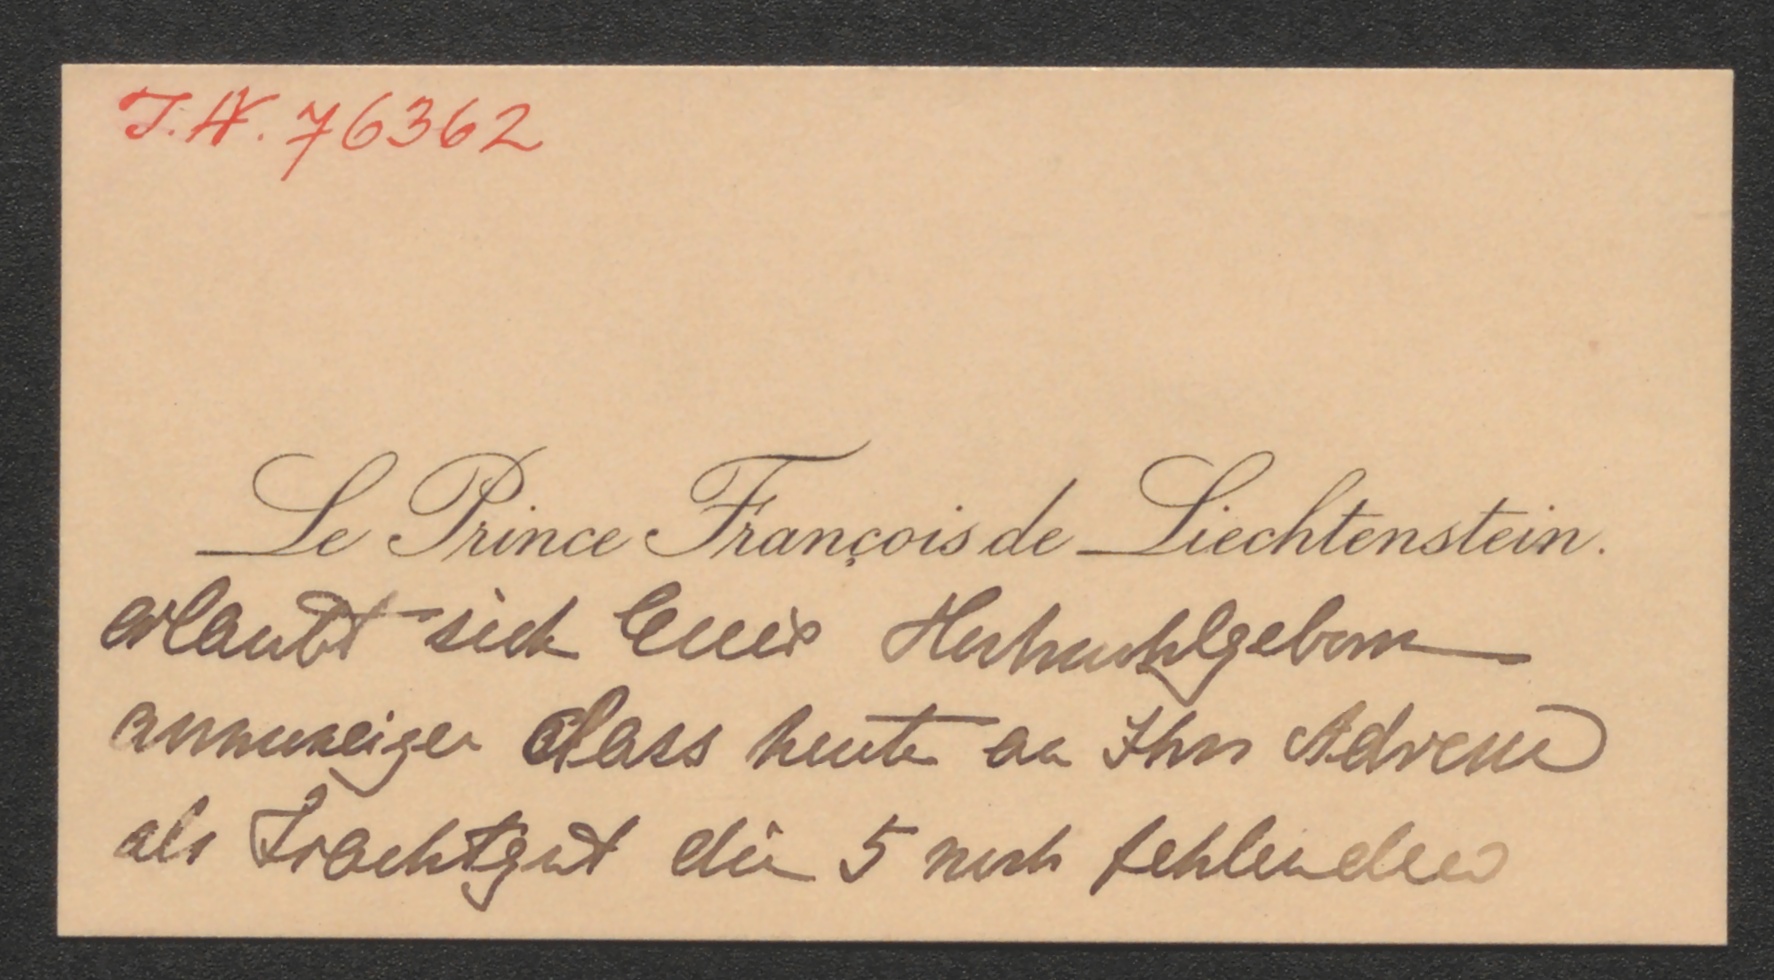 J.N. 76362
Le Prince François de Liechtenstein.
erlaubt sich Euer Hochwohlgeboren
anzuzeigen dass heute an Ihre Adresse
als Frachtgut die 5 noch fehlenden